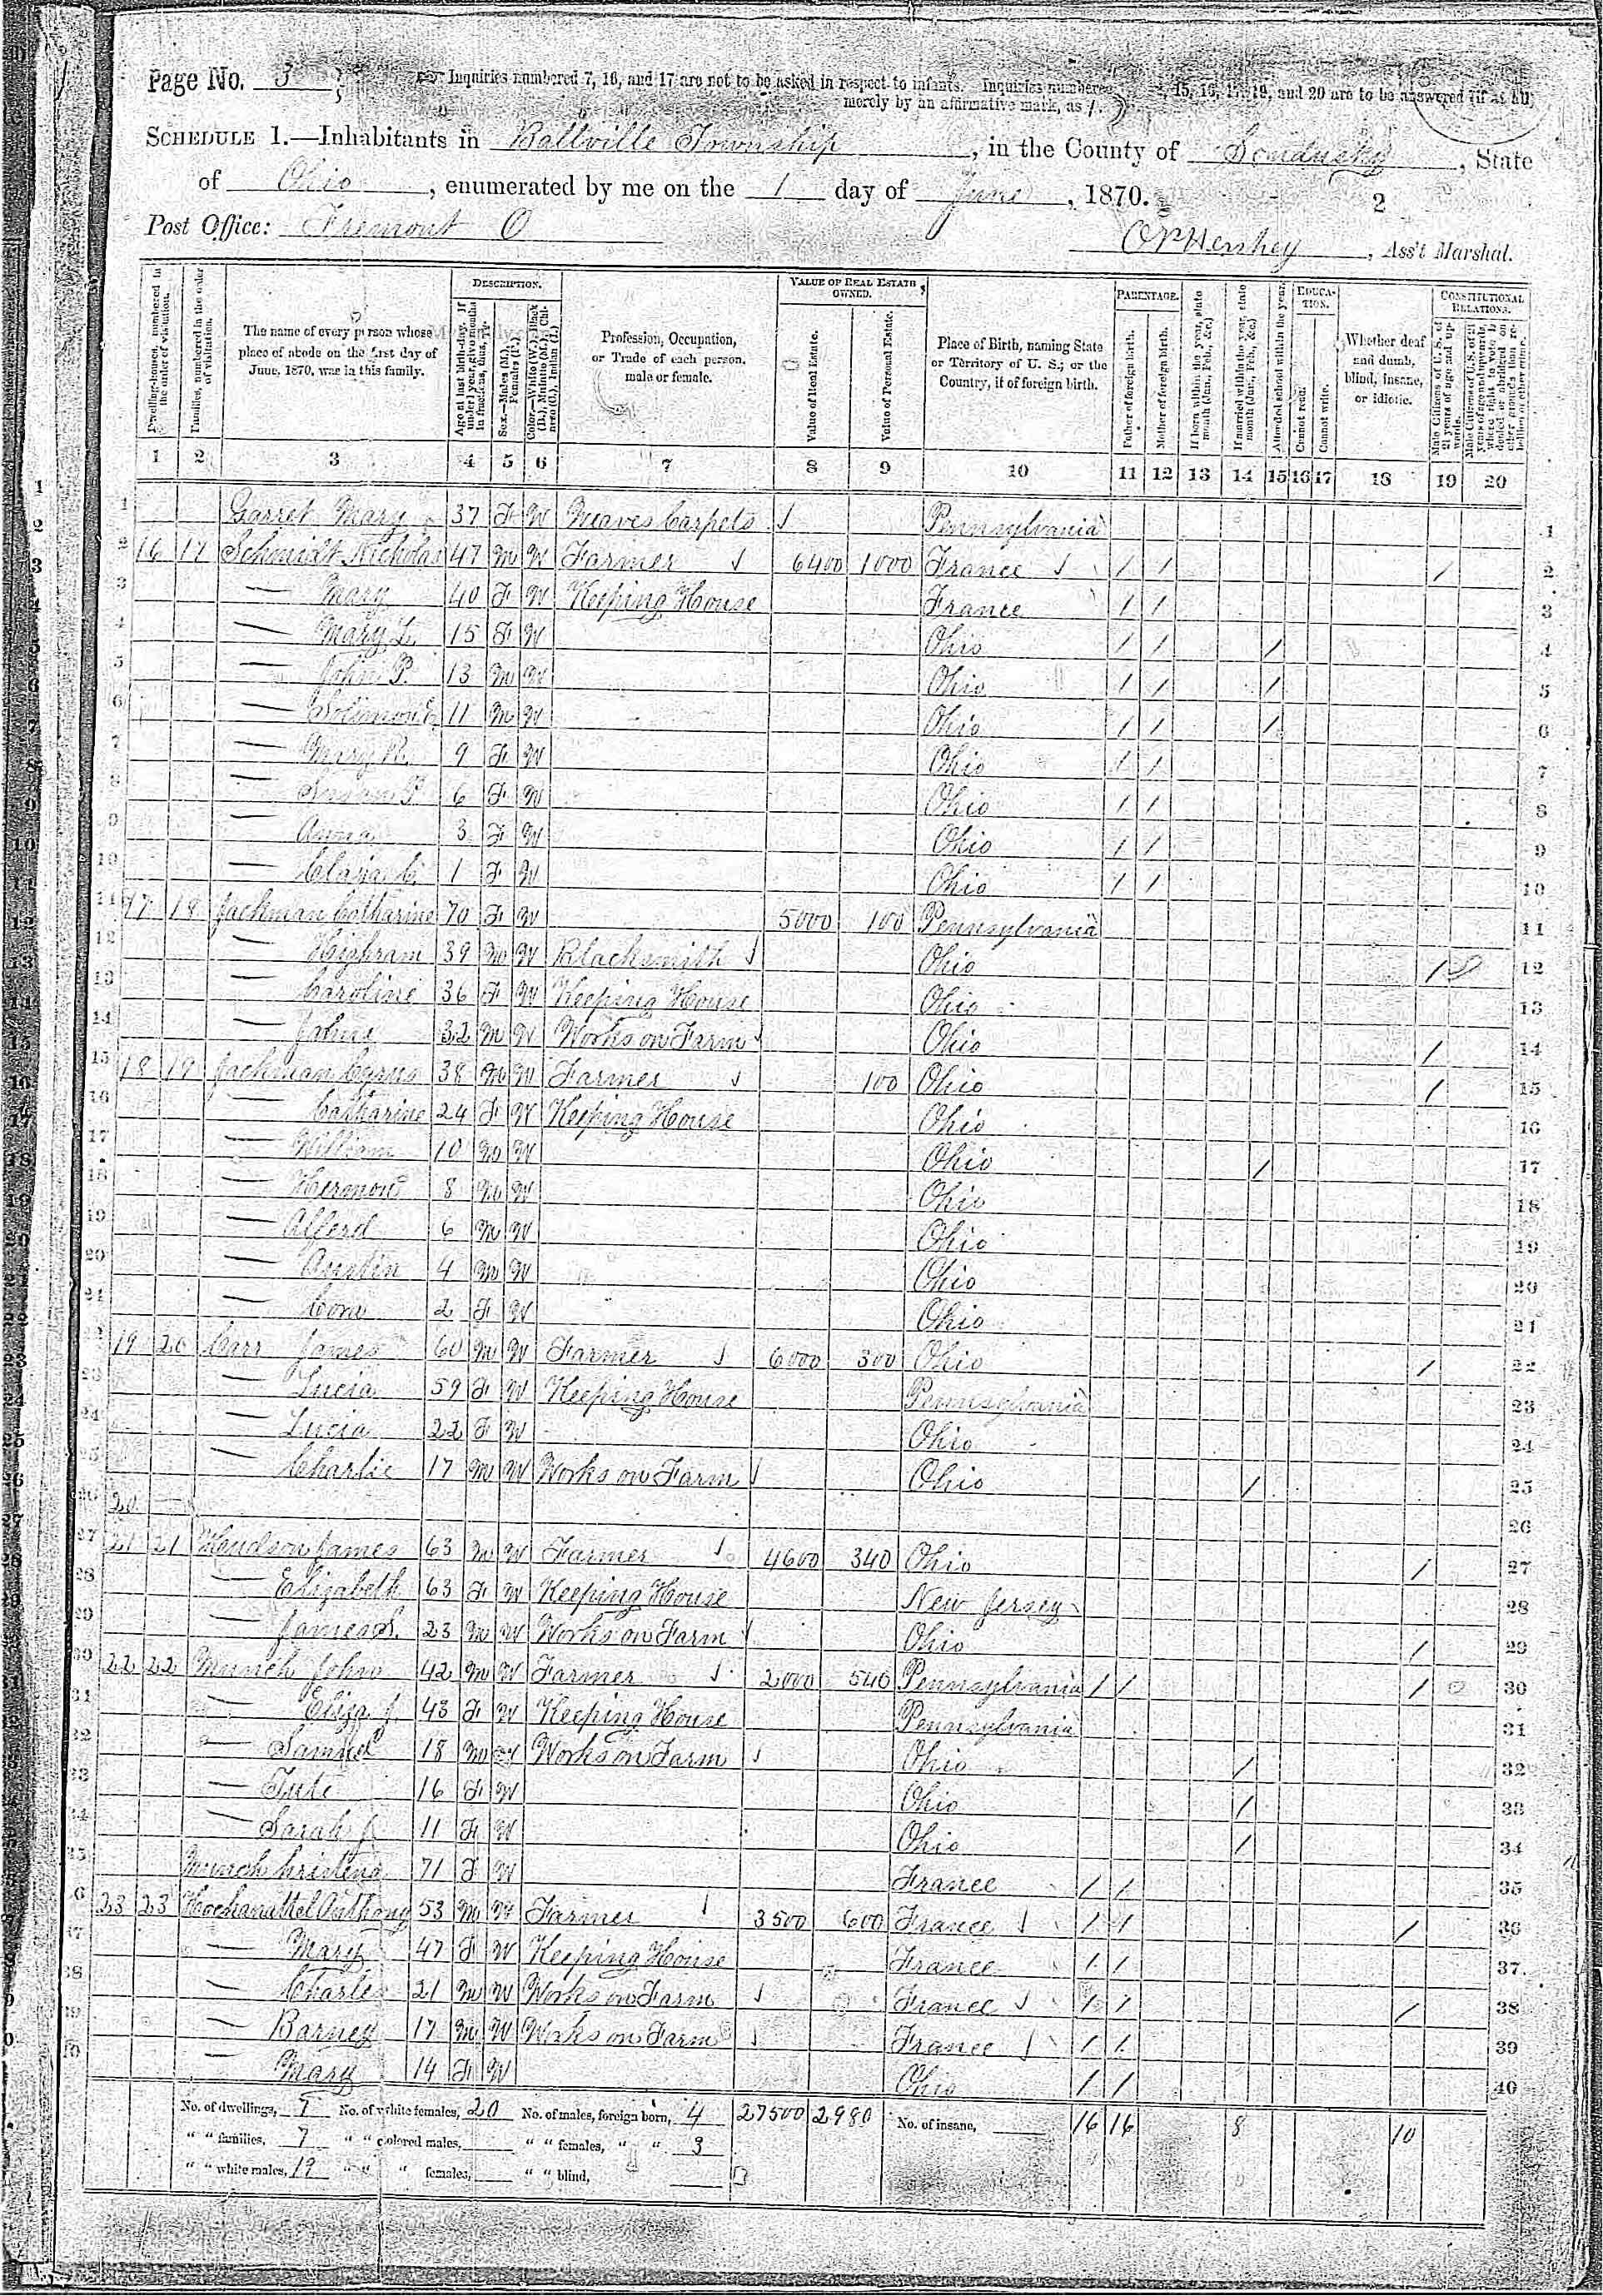 Page No. 3
Inquiries numbered 7, 16, and 17 are not to be asked in respect to infants. Inquiries numbered 15, 16, 17, 19, and 20 are to be answered (if at all)
merely by an affirmative mark, as /.
SCHEDULE 1.—Inhabitants in Ballville Township, in the County of Sandusky, State
of Ohio, enumerated by me on the 1 day of June, 1870.
2
Post Office: Fremont O
Hershey, Ass't Marshal.
Dwelling-houses, numbered in the order of visitation.
Families, numbered in the order of visitation.
The name of every person whose place of abode on the first day of June, 1870, was in this family.
DESCRIPTION.
Age at last birth-day. If under 1 year, give months in fractions, thus, 
Sex.—Males (M.), Females (F.).
Color.—White (W.), Black (B.), Mulatto (M.), Chinese (C.), Indian (I.)
Profession, Occupation, or Trade of each person, male or female.
VALUE OF REAL ESTATE OWNED.
Value of Real Estate.
Value of Personal Estate.
Place of Birth, naming State or Territory of U. S.; or the Country, if of foreign birth.
PARENTAGE.
Father of foreign birth.
Mother of foreign birth.
If born within the year, state month (Jan., Feb., &c.)
If married within the year, state month (Jan., Feb., &c.)
Attended school within the year.
EDUCATION.
Cannot read.
Cannot write.
Whether deaf and dumb, blind, insane, or idiotic.
CONSTITUTIONAL RELATIONS.
Male Citizens of U. S. of 21 years of age and upwards.
Male Citizens of U. S. of 21 years of age and upwards, where right to vote is denied or abridged on other grounds than rebellion or other crime.
1 2 3 4 5 6 7 8 9 10 11 12 13 14 15 16 17 18 19 20
1 Garret Mary 37 F W Weaves Carpets Pennsylvania 1
2 16 17 Schmidt Nicholas 47 M W Farmer 6400 1000 France / / / 2
3 — Mary 40 F W Keeping House France / / 3
4 — Mary L. 15 F W Ohio / / / 4
5 — John P. 13 M W Ohio / / / 5
6 — 11 M W Ohio / / / 6
7 — Mary R. 9 F W Ohio / / 7
8 — Susan P 6 F W Ohio / / 8
9 — Anna 3 F W Ohio / / 9
10 — Clara C. 1 F W Ohio / / 10
11 17 18 Jackman Catharine 70 F W 5000 100 Pennsylvania 11
12 — Highram 39 M W Blacksmith Ohio / 12
13 — Caroline 36 F W Keeping House Ohio 13
14 — John 32 M W Works on Farm Ohio / 14
15 18 19 Jackman Cyrus 38 M W Farmer 100 Ohio / 15
16 — Catharine 24 F W Keeping House Ohio 16
17 — William 10 M W Ohio / 17
18 — Hermon 8 M W Ohio 18
19 — Alferd 6 M W Ohio 19
20 — Austin 4 M W Ohio 20
21 — Cora 2 F W Ohio 21
22 19 20 Carr James 60 M W Farmer 6000 300 Ohio / 22
23 — Lucia 59 F W Keeping House Pennsylvania 23
24 — Lucia 22 F W Ohio 24
25 — Charlie 17 M W Works on Farm Ohio / 25
26 20 — 26
27 21 21 Hudson James 63 M W Farmer 4600 340 Ohio / 27
28 — Elizabeth 63 F W Keeping House New Jersey 28
29 — James S. 23 M W Works on Farm Ohio / 29
30 22 22 Munch John 42 M W Farmer 2000 540 Pennsylvania / / / 30
31 — Eliza J. 43 F W Keeping House Pennsylvania 31
32 — Samuel 18 M W Works on Farm Ohio / 32
33 — Tute 16 F W Ohio / 33
34 — Sarah J 11 F W Ohio / 34
35 Munch Christena 71 F W France / / 35
36 23 23 Hochanattel Anthony 53 M W Farmer 3500 600 France / / / 36
37 — Mary 47 F W Keeping House France / / 37
38 — Charles 21 M W Works on Farm France / / / 38
39 — Barney 17 M W Works on Farm France / / 39
40 — Mary 14 F W Ohio / / 40
No. of dwellings, 7 No. of white females, 20 No. of males, foreign born, 4 27500 2980 No. of insane, 16 16 8 10
" " families, 7 " " colored males, " " females, " " 3
" " white males, 19 " " " females, " " blind,